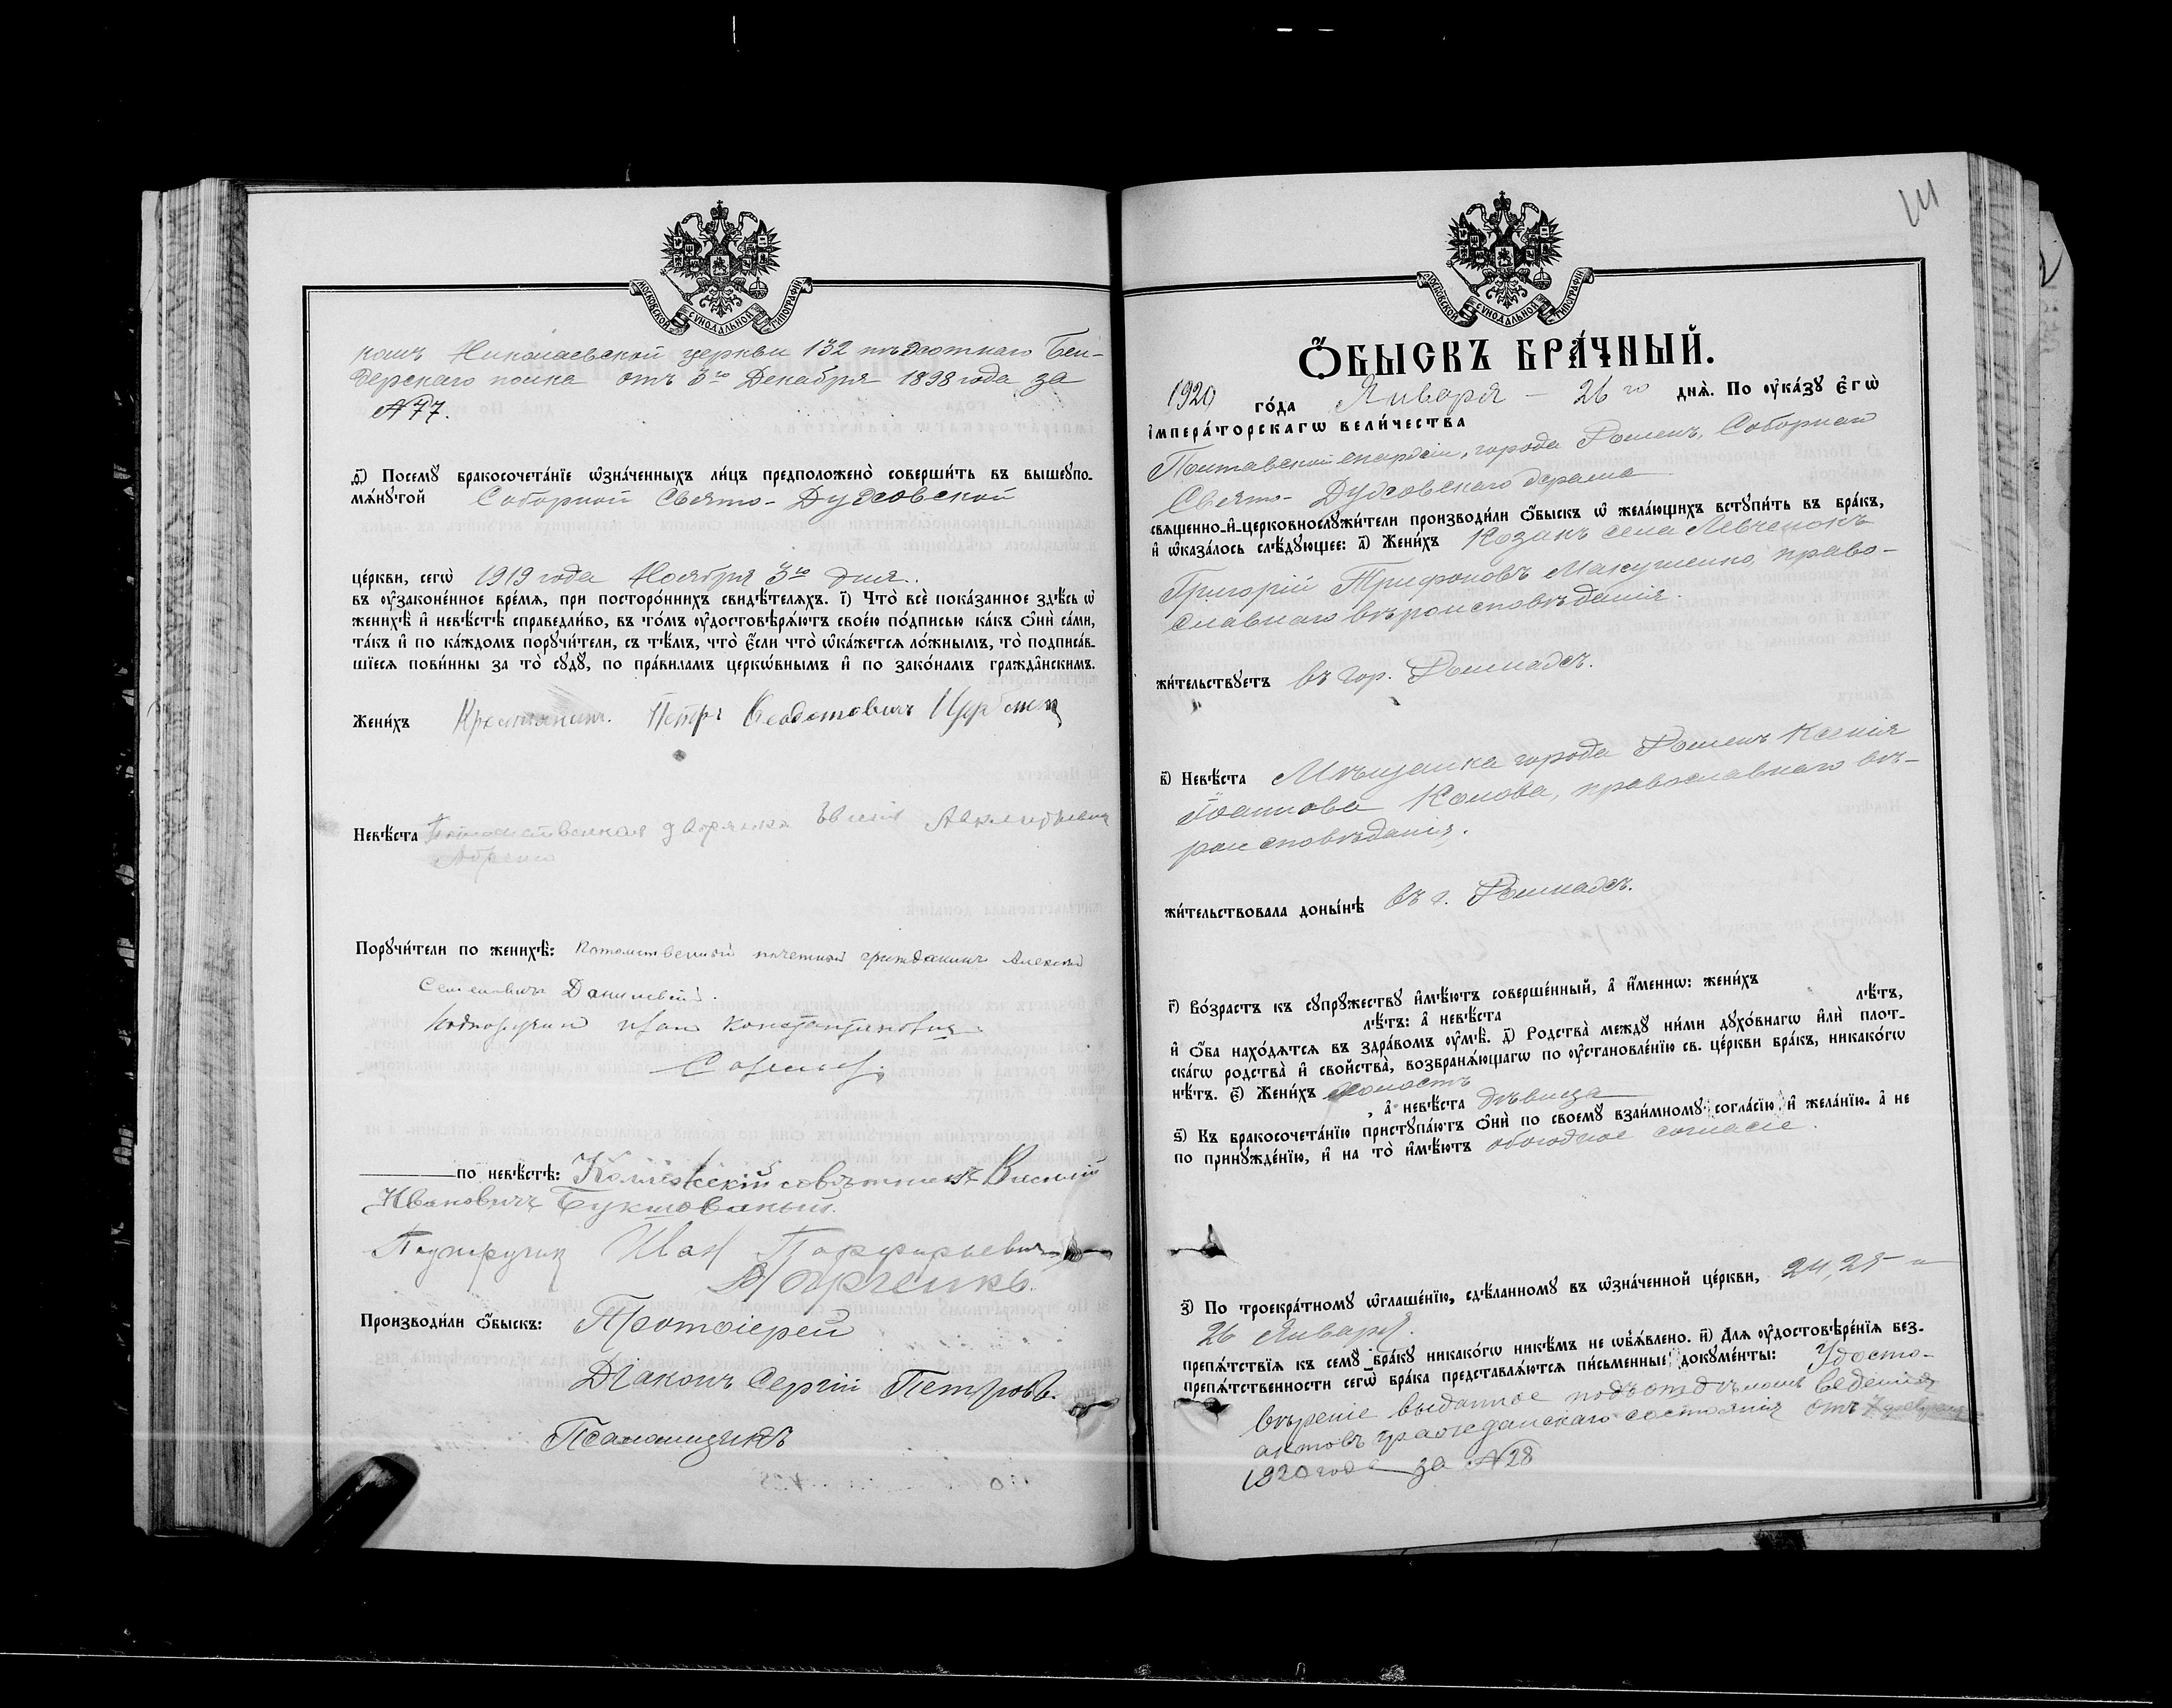 МОСКОВСКОЙ СѴНОДАЛЬНОЙ ТИПОГРАФІИ
комъ Николаевской церкви 132 пѣхотнаго Бен-
дерскаго полка отъ 3го Декабря 1898 года за
№77.
д҃) Посемꙋ бракосочета́нїе ѡзна́ченныхъ ли́цъ предположено̀ соверши́ть въ вышеꙋпо-
мѧ́нꙋтой Соборной Свято-Духовской
це́ркви, сегѡ̀ 1919 года Ноября 3го дня.
въ ᲂу҆законе́нное вре́мѧ, при посторо́ннихъ свидѣ́телѧхъ. і҃) Что̀ всѐ пока́занное здѣ́сь ѡ҆
женихѣ̀ и҆ невѣ́стѣ справедли́во, въ то́мъ ᲂу҆достовѣрѧ́ютъ свое́ю по́дписью ка́къ ѻ҆нѝ са́ми,
та́къ и҆ по ка́ждомъ порꙋчи́тели, съ тѣ́мъ, что̀ є҆́сли что̀ ѡ҆ка́жетсѧ ло́жнымъ, то̀ подписа́в-
шїесѧ пови́нны за то̀ сꙋдꙋ̀, по пра́виламъ церкѡ́внымъ и҆ по зако́намъ гражда̑нскимъ.
Жени́хъ Крестьянинъ. Петръ Феодотовичъ
Невѣ́ста Потомственная дворянка
Порꙋчи́тели по женихѣ̀: Потомственный почетный гражданинъ Алексѣй
Семеновичъ Данилевскій.
Подпоручикъ Иван Константинович
по невѣ́стѣ: Коллежскій совѣтникъ Василій
Ивановичъ
Подпоручик Иван Порфирьевич
Марченко.
Производи́ли ѻ҆́быскъ: Протоіерей
Діаконъ Сергій Петровъ.
Псаломщикъ
111
МОСКОВСКОЙ СѴНОДАЛЬНОЙ ТИПОГРАФІИ
Ѻ҆́БЫСКЪ БРА́ЧНЫЙ.
1920 го́да Января - 26го днѧ̀. По ᲂу҆ка́зꙋ є҆гѡ̀
і҆мпера́торскагѡ вели́чества
Полтавской епархіи, города Ромен, Соборнаго
Свято-Духовскаго храма
свѧщенно-и҆-церковнослꙋжи́тели производи́ли ѻ҆́быскъ ѡ҆ жела́ющихъ встꙋпи́ть въ бра́къ,
и҆ ѡ҆каза́лось слѣ́дꙋющее: а҃) Жени́хъ Козакъ села Левченокъ
Григорій Трифоновъ Макушенко, право-
славнаго вѣроисповѣданія.
жи́тельствꙋетъ въ гор. Ромнахъ.
в҃) Невѣ́ста Мѣщанка города Роменъ Ксенія
Іоаннова Конова, православнаго вѣ-
роисповѣданія.
жи́тельствовала доны́нѣ въ г. Ромнахъ.
г҃) Во́зрастъ къ сꙋпрꙋ́жествꙋ и҆мѣ́ютъ соверше́нный, а҆ и҆́меннѡ: жени́хъ
лѣ́тъ: а҆ невѣ́ста лѣ́тъ,
и҆ ѻ҆́ба нахо́дѧтсѧ въ здра́вомъ ᲂу҆мѣ̀. д҃) Родства̀ междꙋ̀ ни́ми дꙋхо́внагѡ и҆лѝ плот-
скагѡ родства̀ и҆ сво́йства̀, возбранѧ́ющагѡ по ᲂу҆становле́нїю св. це́ркви бра́къ, никако́гѡ
нѣ́тъ. є҃) Жени́хъ холостъ
, а҆ невѣ́ста дѣвица
ѕ҃) Къ бракосочета́нїю пристꙋпа́ютъ ѻ҆нѝ по своемꙋ̀ взаи́мномꙋ согла́сїю и҆ жела́нїю, а҆ не
по принꙋжде́нїю, и҆ на то̀ и҆мѣ́ютъ обоюдное согласіе.
з҃) По троекра́тномꙋ ѡ҆глаше́нїю, сдѣ́ланномꙋ въ ѡ҆зна́ченной це́ркви, 24, 25 и
26 Января.
препѧ́тствїѧ къ семꙋ̀ бра́кꙋ никако́гѡ никѣ́мъ не ѡ҆б̾ѧ́влено. и҃) Длѧ ᲂу҆достовѣре́нїѧ без-
препѧ́тственности сегѡ̀ бра́ка представлѧ́ютсѧ пи́сьменные докꙋме́нты: Удосто-
вѣреніе выданное подъотдѣломъ веденія
актовъ гражданскаго состоянія отъ
1920 года за №28